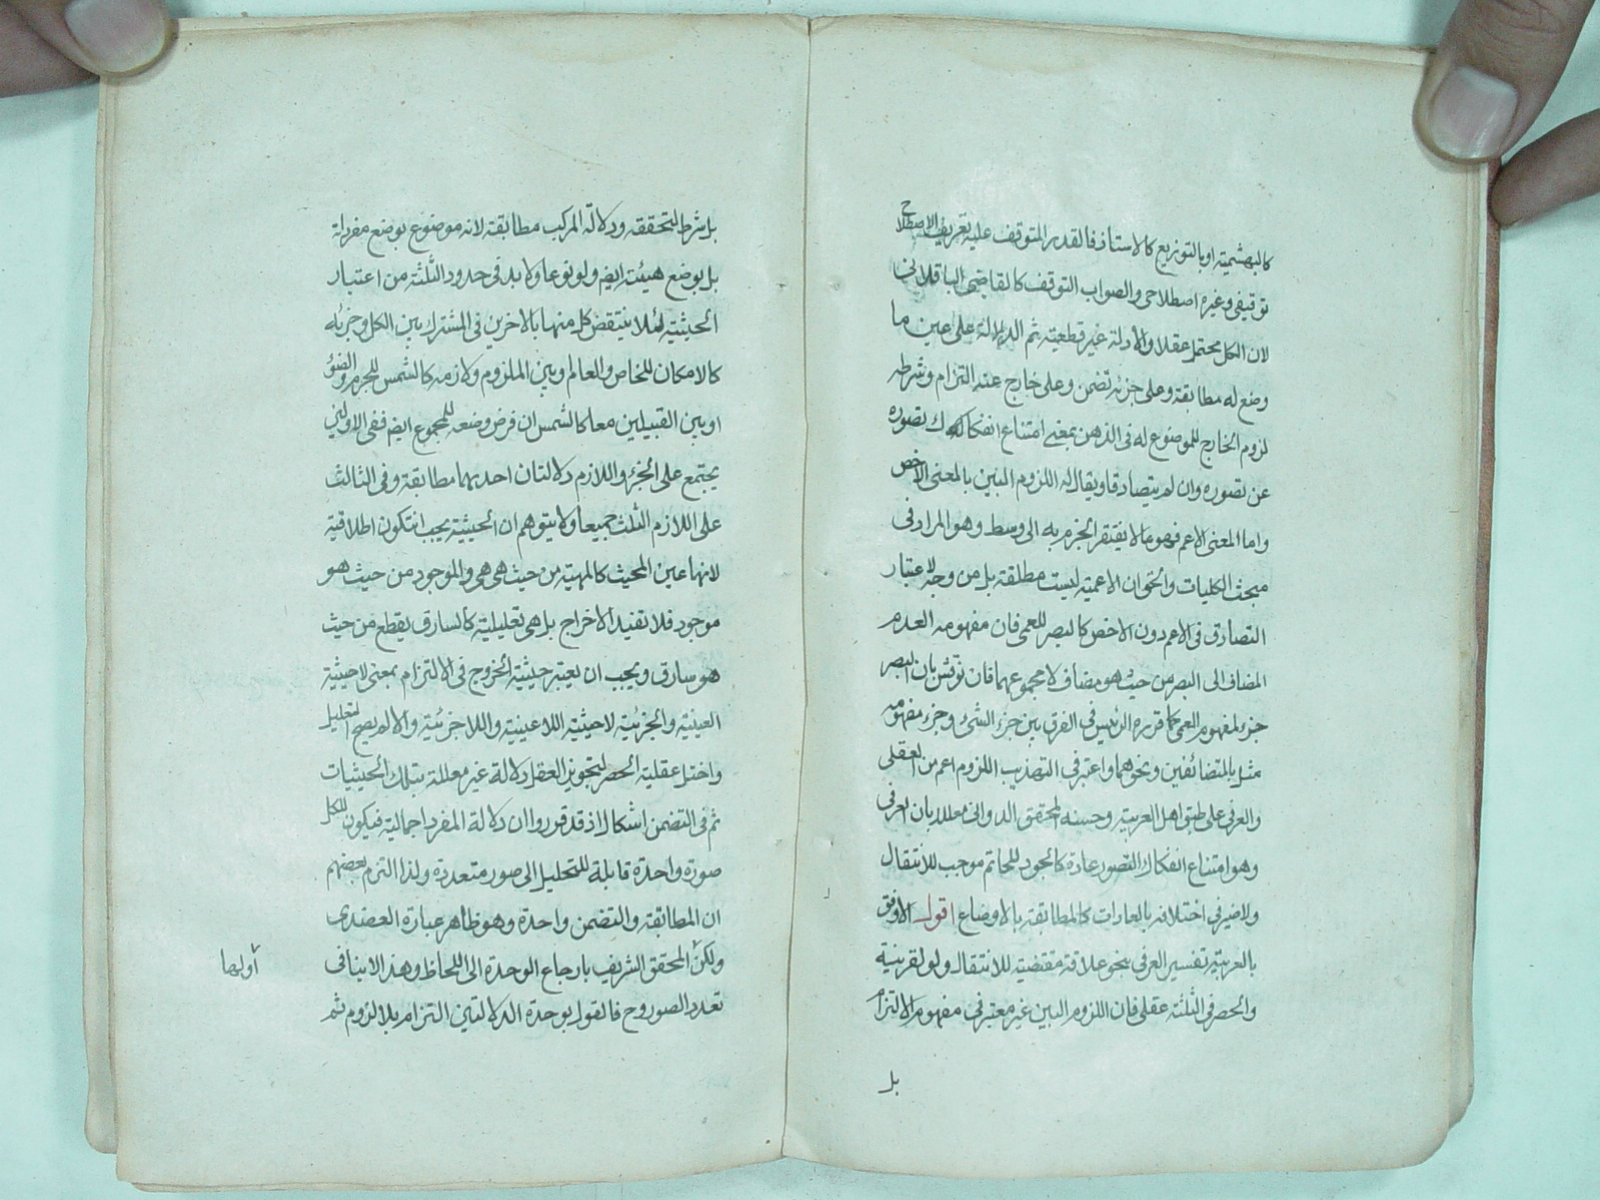 كالبهشمية او بالتوزيع كالاستاذ فالقدر المتوقف عليه تعريف الاصطلاح
توقيفى وغيره اصطلاحى والصواب التوقف كالقاضى الباقلانى
لان الكل محتمل عقلا والادلة غير قطعية ثم الدلالة على عين ما
وضع له مطابقة وعلى جزئه تضمن وعلى خارج عنه التزام وشرطه
لزوم الخارج للموضوع له فى الذهن بمعنى امتناع انفكاك تصوره
عن تصوره وان لم يتصادقا ويقال له اللزوم البين بالمعنى الاخص
واما المعنى الاعم فهو ما لا يفتقر الجزم به الى وسط وهو المراد فى
مبحث الكليات والحق ان الاعمية ليست مطلقة بل من وجه لاعتبار
التصادق فى الاعم دون الاخص كالبصر للعمى فان مفهومه العدم
المضاف الى البصر من حيث هو مضاف لا مجموعهما فان نوقش بان البصر
جزء لمفهوم العمى كما قرره الرئيس فى الفرق بين جزء الشئ وجزء مفهومه
مثل بالمتضائفين ونحوهما واعتبر فى التهذيب اللزوم اعم من العقلى
والعرفى على طبق اهل العربية وحسنه المحقق الدوانى معللا بان العرفى
وهو امتناع انفكاك التصور عادة كالجود للحاتم موجب للانتقال
ولا ضير فى اختلافه بالعادات كالمطابقة بالاوضاع اقول الاوفق
بالعربية تفسير العرفى بنحو علاقة مقتضية للانتقال ولو لقرينة
والحصر فى الثلثة عقلى فان اللزوم البين غير معتبر فى مفهوم الالتزام
بل
بل شرط لتحققه ودلالة المركب مطابقة لانه موضوع بوضع مفرداته
بل بوضع هيئته ايضم ولو نوعا ولا بد فى حدود الثلثة من اعتبار
الحيثية لئلا ينتقض كل منها بالاخرين فى المشترك بين الكل وجزئه
كالامكان للخاص والعام وبين الملزوم ولازمه كالشمس للجرم والضوء
او بين القبيلين معا كالشمس ان فرض وضعه للمجموع ايضم ففى الاولين
يجتمع على الجزء واللازم دلالتان احديهما مطابقة وفى الثالث
على اللازم الثلث جميعا ولا يتوهم ان الحيثية يجب انتكون اطلاقية
لانها عين المحيث كالمهية من حيث هى هى والموجود من حيث هو
موجود فلا تفيد الاخراج بل هى تعليلية كالسارق يقطع من حيث
هو سارق ويجب ان يعتبر حيثية الخروج فى الالتزام بمعنى لا حيثية
العينية والجزئية لا حيثية اللاعينية واللاجزئية والا لم يصح التعليل
واختل عقلية الحصر لتجويز العقل دلالة غير معللة بتلك الحيثيات
ثم فى التضمن اشكال اذ قد قرروا ان دلالة المفرد اجمالية فيكون للكل
صورة واحدة قابلة للتحليل الى صور متعددة ولذا التزم بعضهم
ان المطابقة والتضمن واحدة وهو ظاهر عبارة العضدى
ولكن المحقق الشريف بارجاع الوحدة الى اللحاظ وهذا لا ينافى
تعدد الصور وح فالقول بوحدة الدلالتين التزام بلا لزوم ثم
اولها